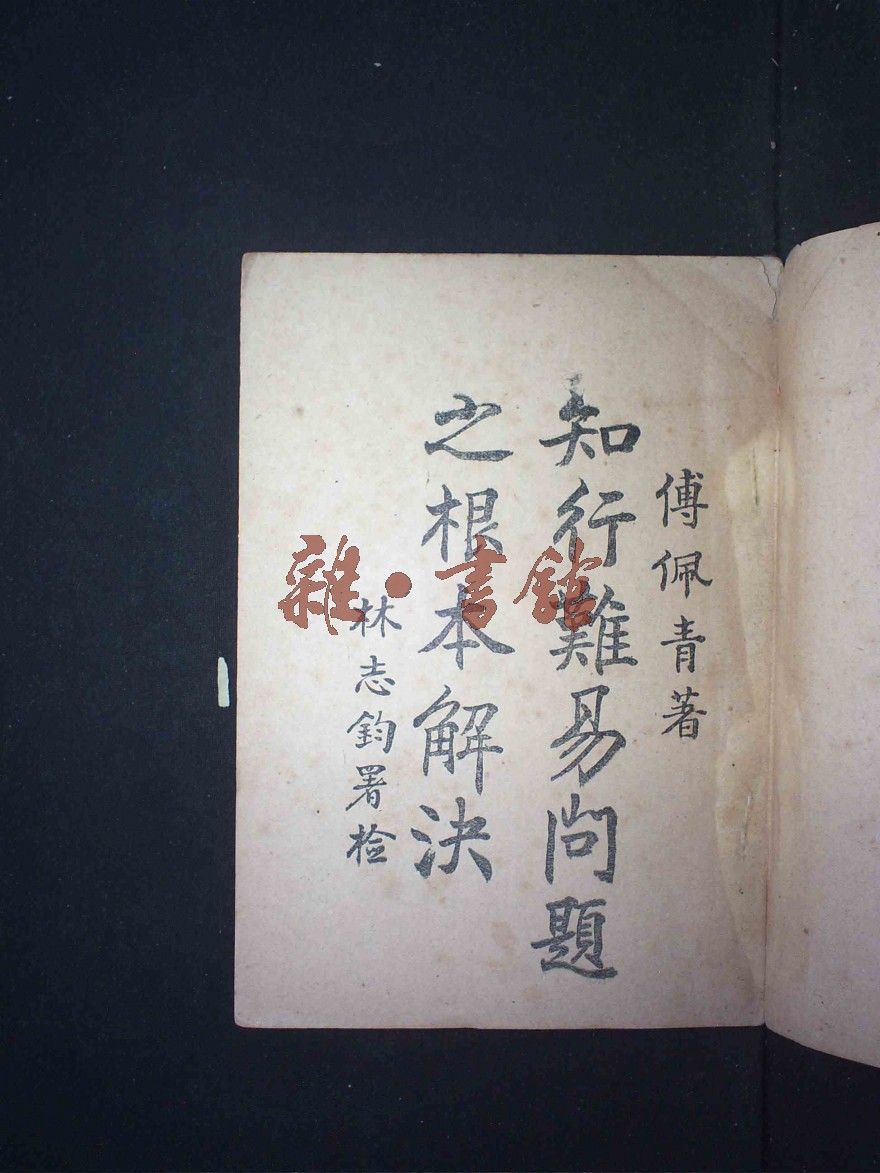 傅佩青著
知行難易問題
之根本解决
林志鈞署检
雜·書館